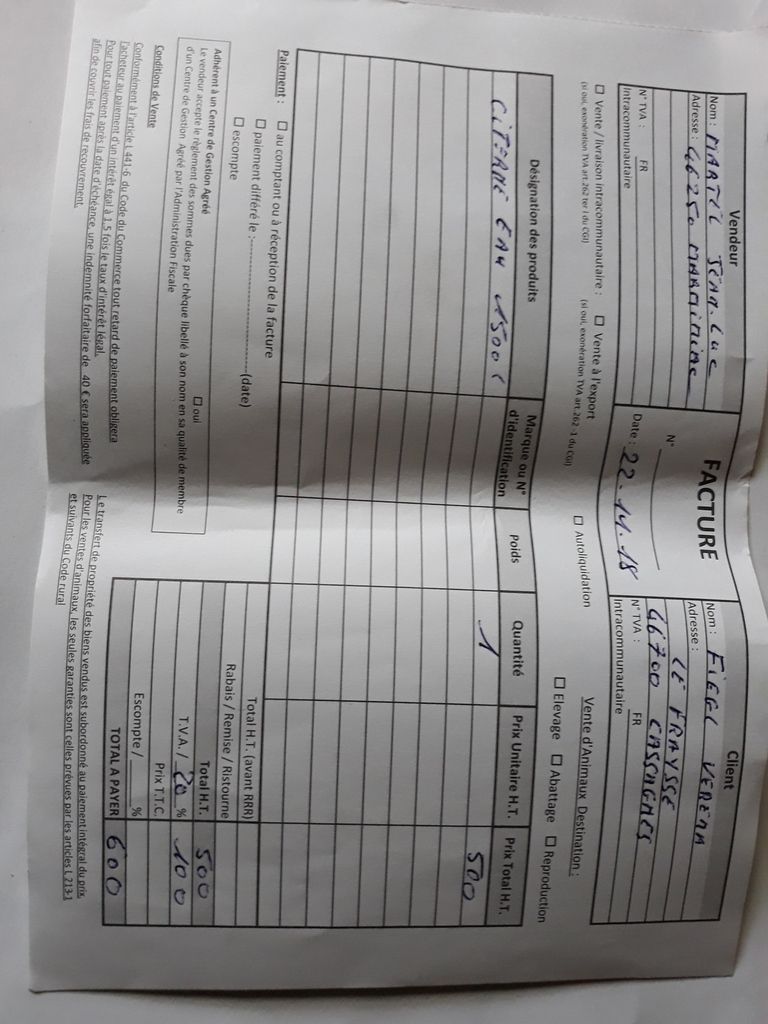 Vendeur
Nom : MARTEL JEAN-LUC
Adresse : 46250 MARMINIAC
N° TVA : FR
Intracommunautaire
FACTURE
N°
Date : 22.11.18
Client
Nom : FIEGL VERENA
Adresse :
LE FRAYSSE
46700 CASSAGNES
N° TVA : FR
Intracommunautaire
☐ Vente / livraison intracommunautaire : ☐ Vente à l'export ☐ Autoliquidation
(si oui, exonération TVA art.262 ter I du CGI) (si oui, exonération TVA art.262 -1 du CGI)
Vente d'Animaux Destination :
☐ Elevage ☐ Abattage ☐ Reproduction
Désignation des produits Marque ou N° d'identification Poids Quantité Prix Unitaire H.T. Prix Total H.T.
CITERNE EAU 1500 L 1 500
Paiement : ☐ au comptant ou à réception de la facture
☐ paiement différé le :------------------------(date)
☐ escompte
Adhérent à un Centre de Gestion Agréé ☐ oui
Le vendeur accepte le règlement des sommes dues par chèque libellé à son nom en sa qualité de membre
d'un Centre de Gestion Agréé par l'Administration Fiscale
Total H.T. (avant RRR)
Rabais / Remise / Ristourne
Total H.T. 500
T.V.A. / 20 % 100
Prix T.T.C.
Escompte / ____ %
TOTAL A PAYER 600
Conditions de Vente
Conformément à l'article L 441-6 du Code du Commerce tout retard de paiement obligera
l'acheteur au paiement d'un intérêt égal à 1.5 fois le taux d'intérêt légal.
Pour tout paiement après la date d'échéance, une indemnité forfaitaire de 40 € sera appliquée
afin de couvrir les frais de recouvrement.
Le transfert de propriété des biens vendus est subordonné au paiement intégral du prix.
Pour les ventes d'animaux, les seules garanties sont celles prévues par les articles L 213-1
et suivants du Code rural